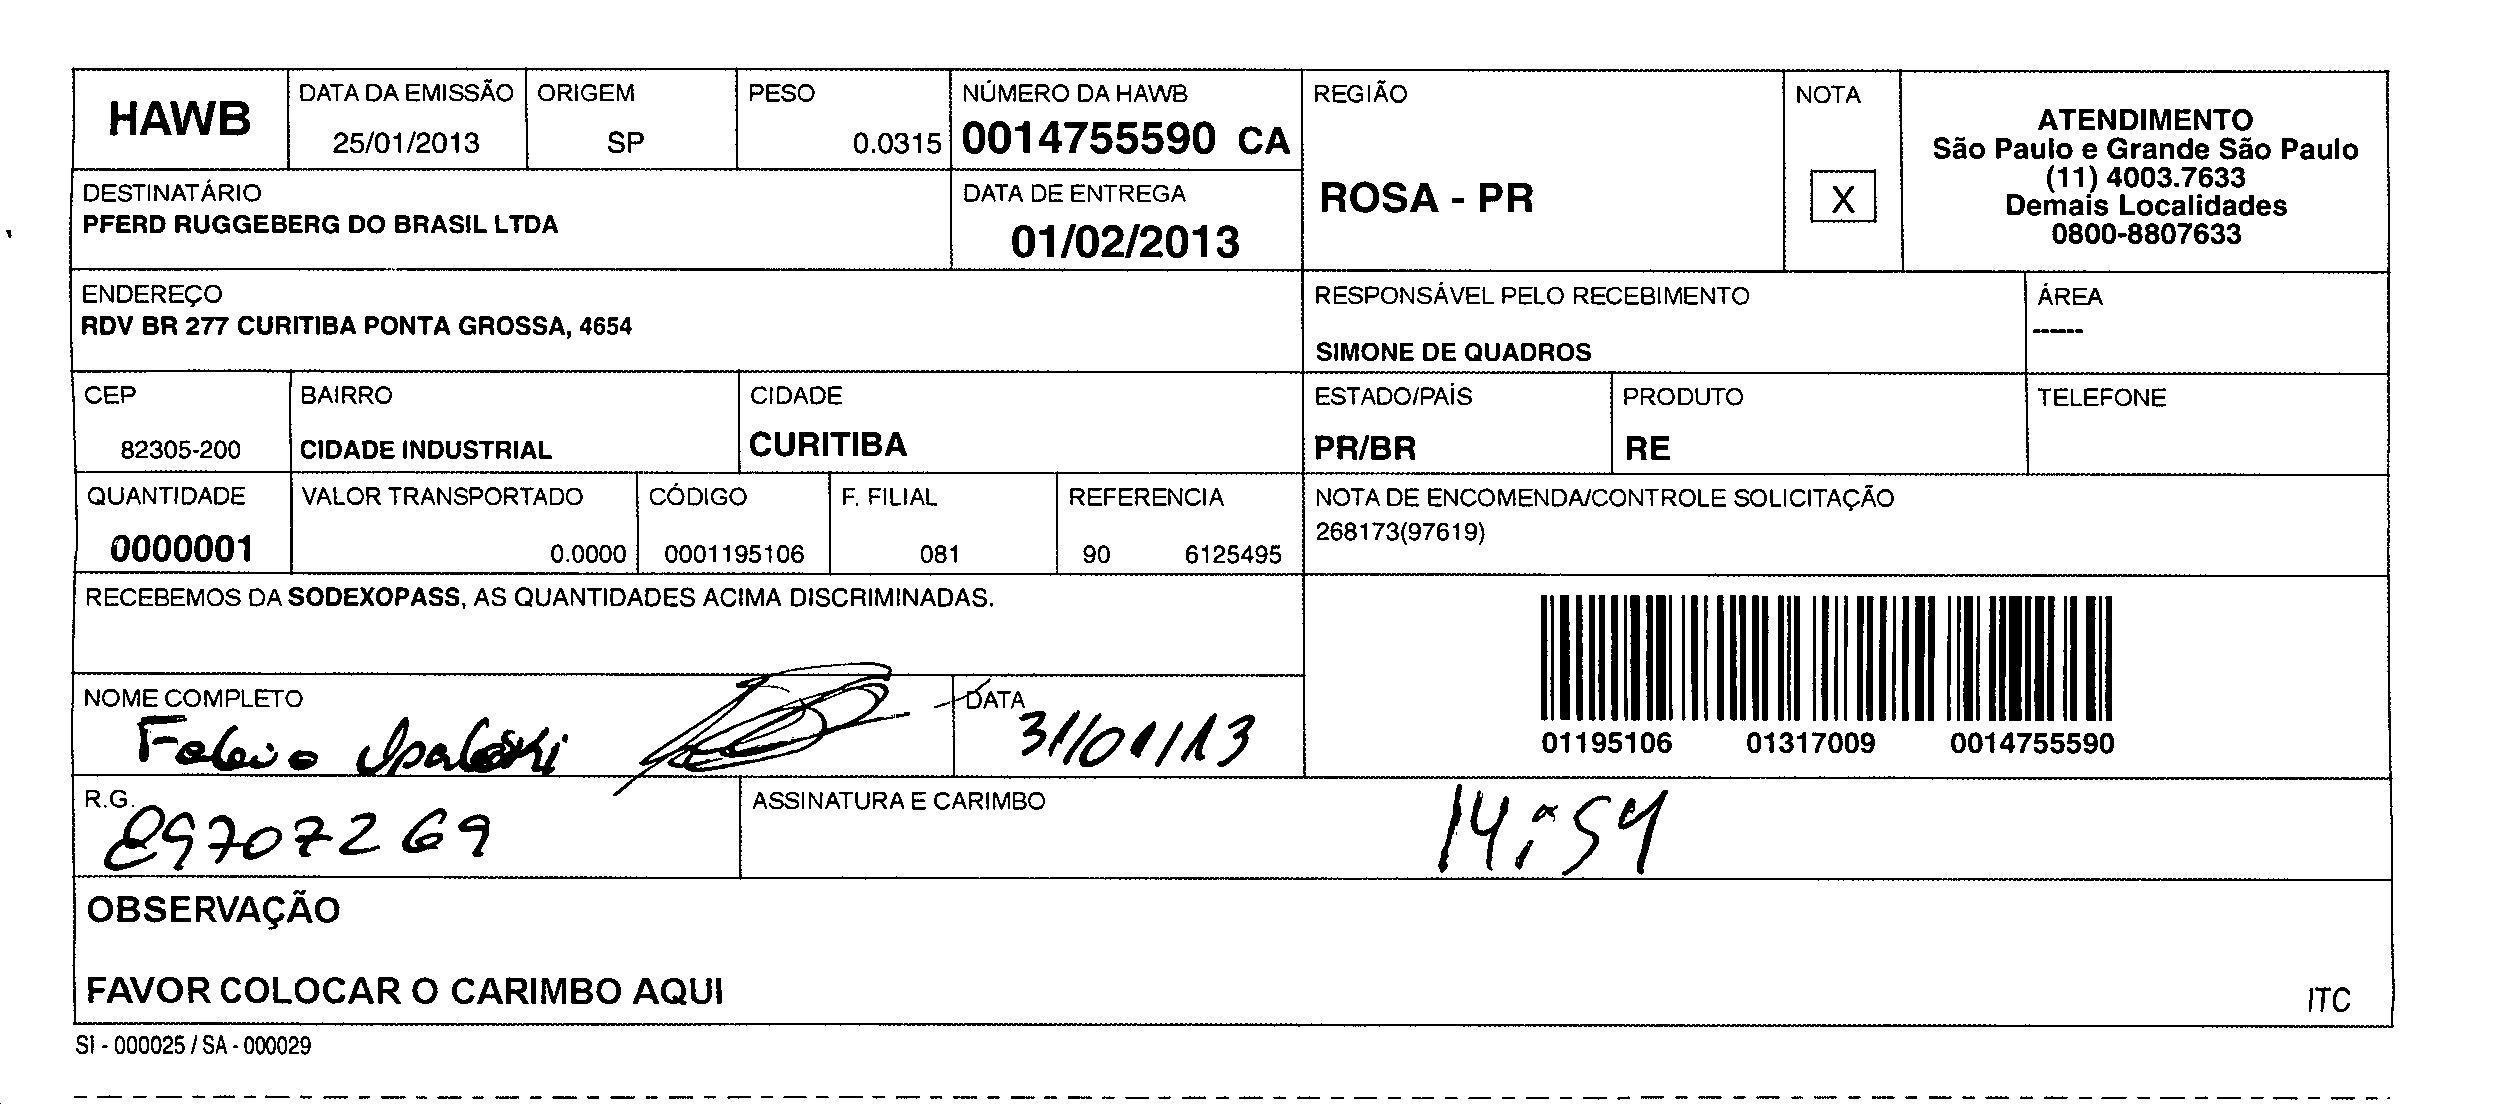 HAWB
DATA DA EMISSÃO
25/01/2013
ORIGEM
SP
PESO
0.0315
NÚMERO DA HAWB
0014755590 CA
REGIÃO
ROSA - PR
NOTA
X
ATENDIMENTO
São Paulo e Grande São Paulo
(11) 4003.7633
Demais Localidades
0800-8807633
DESTINATÁRIO
PFERD RUGGEBERG DO BRASIL LTDA
DATA DE ENTREGA
01/02/2013
ENDEREÇO
RDV BR 277 CURITIBA PONTA GROSSA, 4654
RESPONSÁVEL PELO RECEBIMENTO
SIMONE DE QUADROS
ÁREA
------
CEP
82305-200
BAIRRO
CIDADE INDUSTRIAL
CIDADE
CURITIBA
ESTADO/PAÍS
PR/BR
PRODUTO
RE
TELEFONE
QUANTIDADE
0000001
VALOR TRANSPORTADO
0.0000
CÓDIGO
0001195106
F. FILIAL
081
REFERENCIA
90 6125495
NOTA DE ENCOMENDA/CONTROLE SOLICITAÇÃO
268173(97619)
RECEBEMOS DA SODEXOPASS, AS QUANTIDADES ACIMA DISCRIMINADAS.
01195106 01317009 0014755590
NOME COMPLETO
DATA
31/01/13
R.G.
89707269
ASSINATURA E CARIMBO
14:54
OBSERVAÇÃO
FAVOR COLOCAR O CARIMBO AQUI
ITC
SI - 000025 / SA - 000029